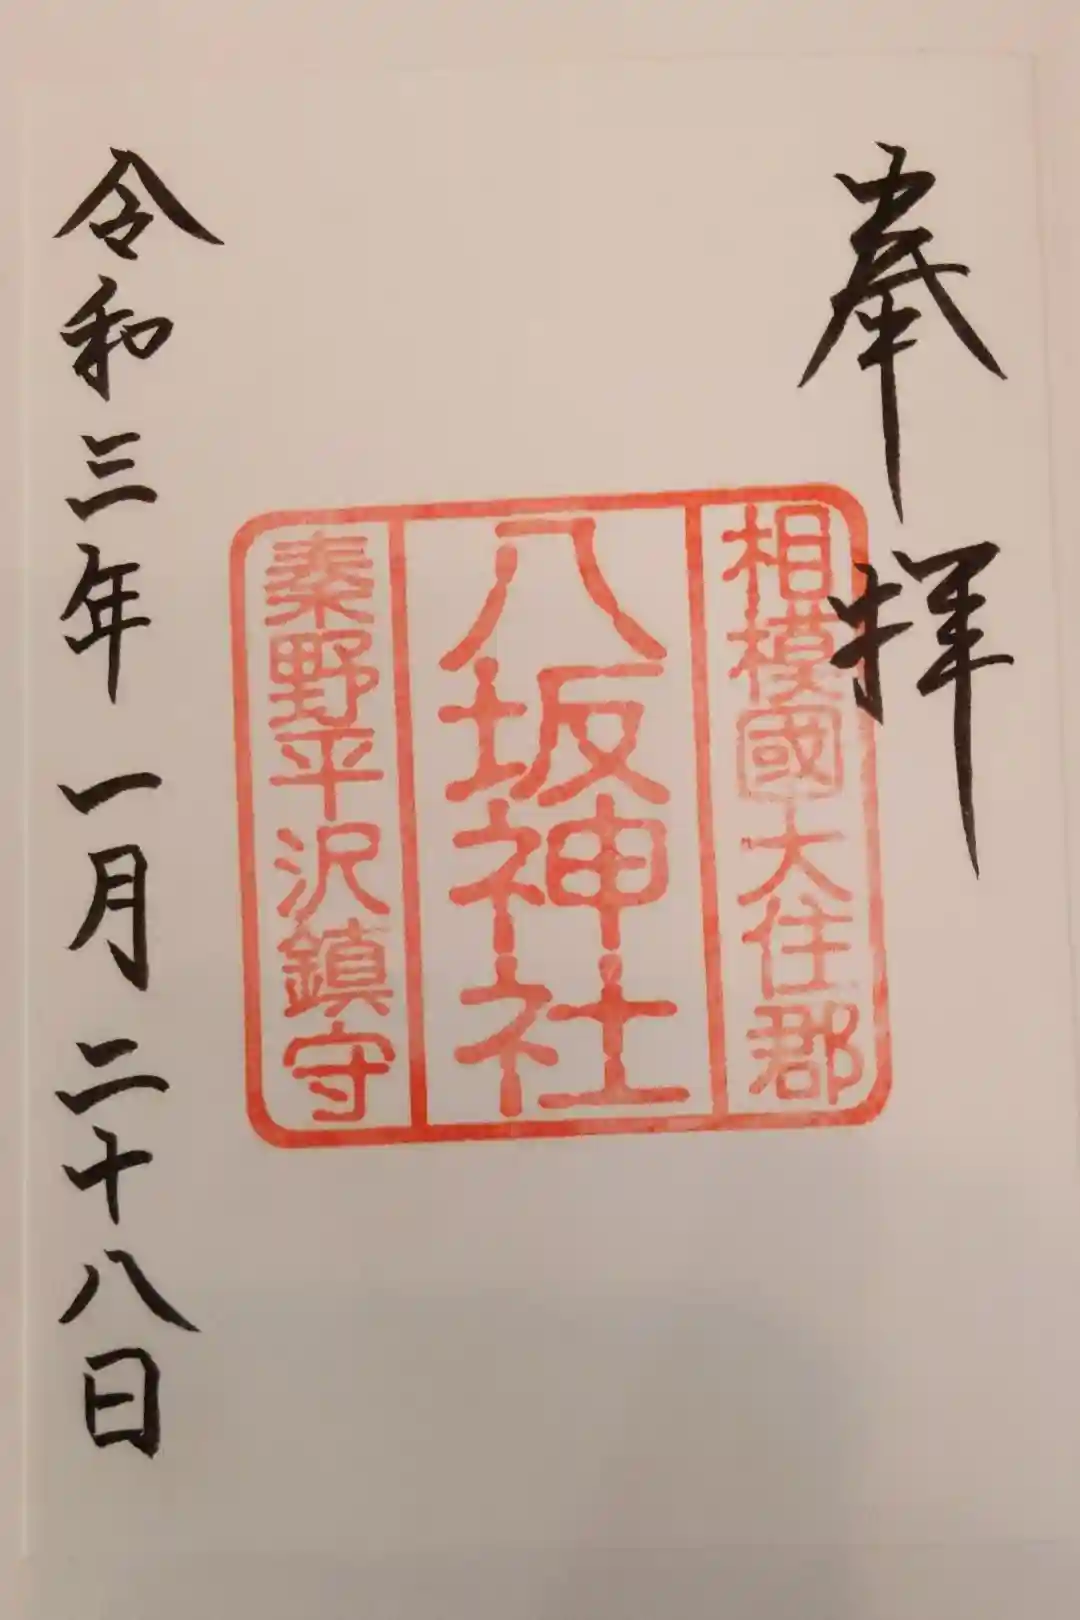 奉拝
相模國大住郡
八坂神社
秦野平沢鎮守
令和三年一月二十八日